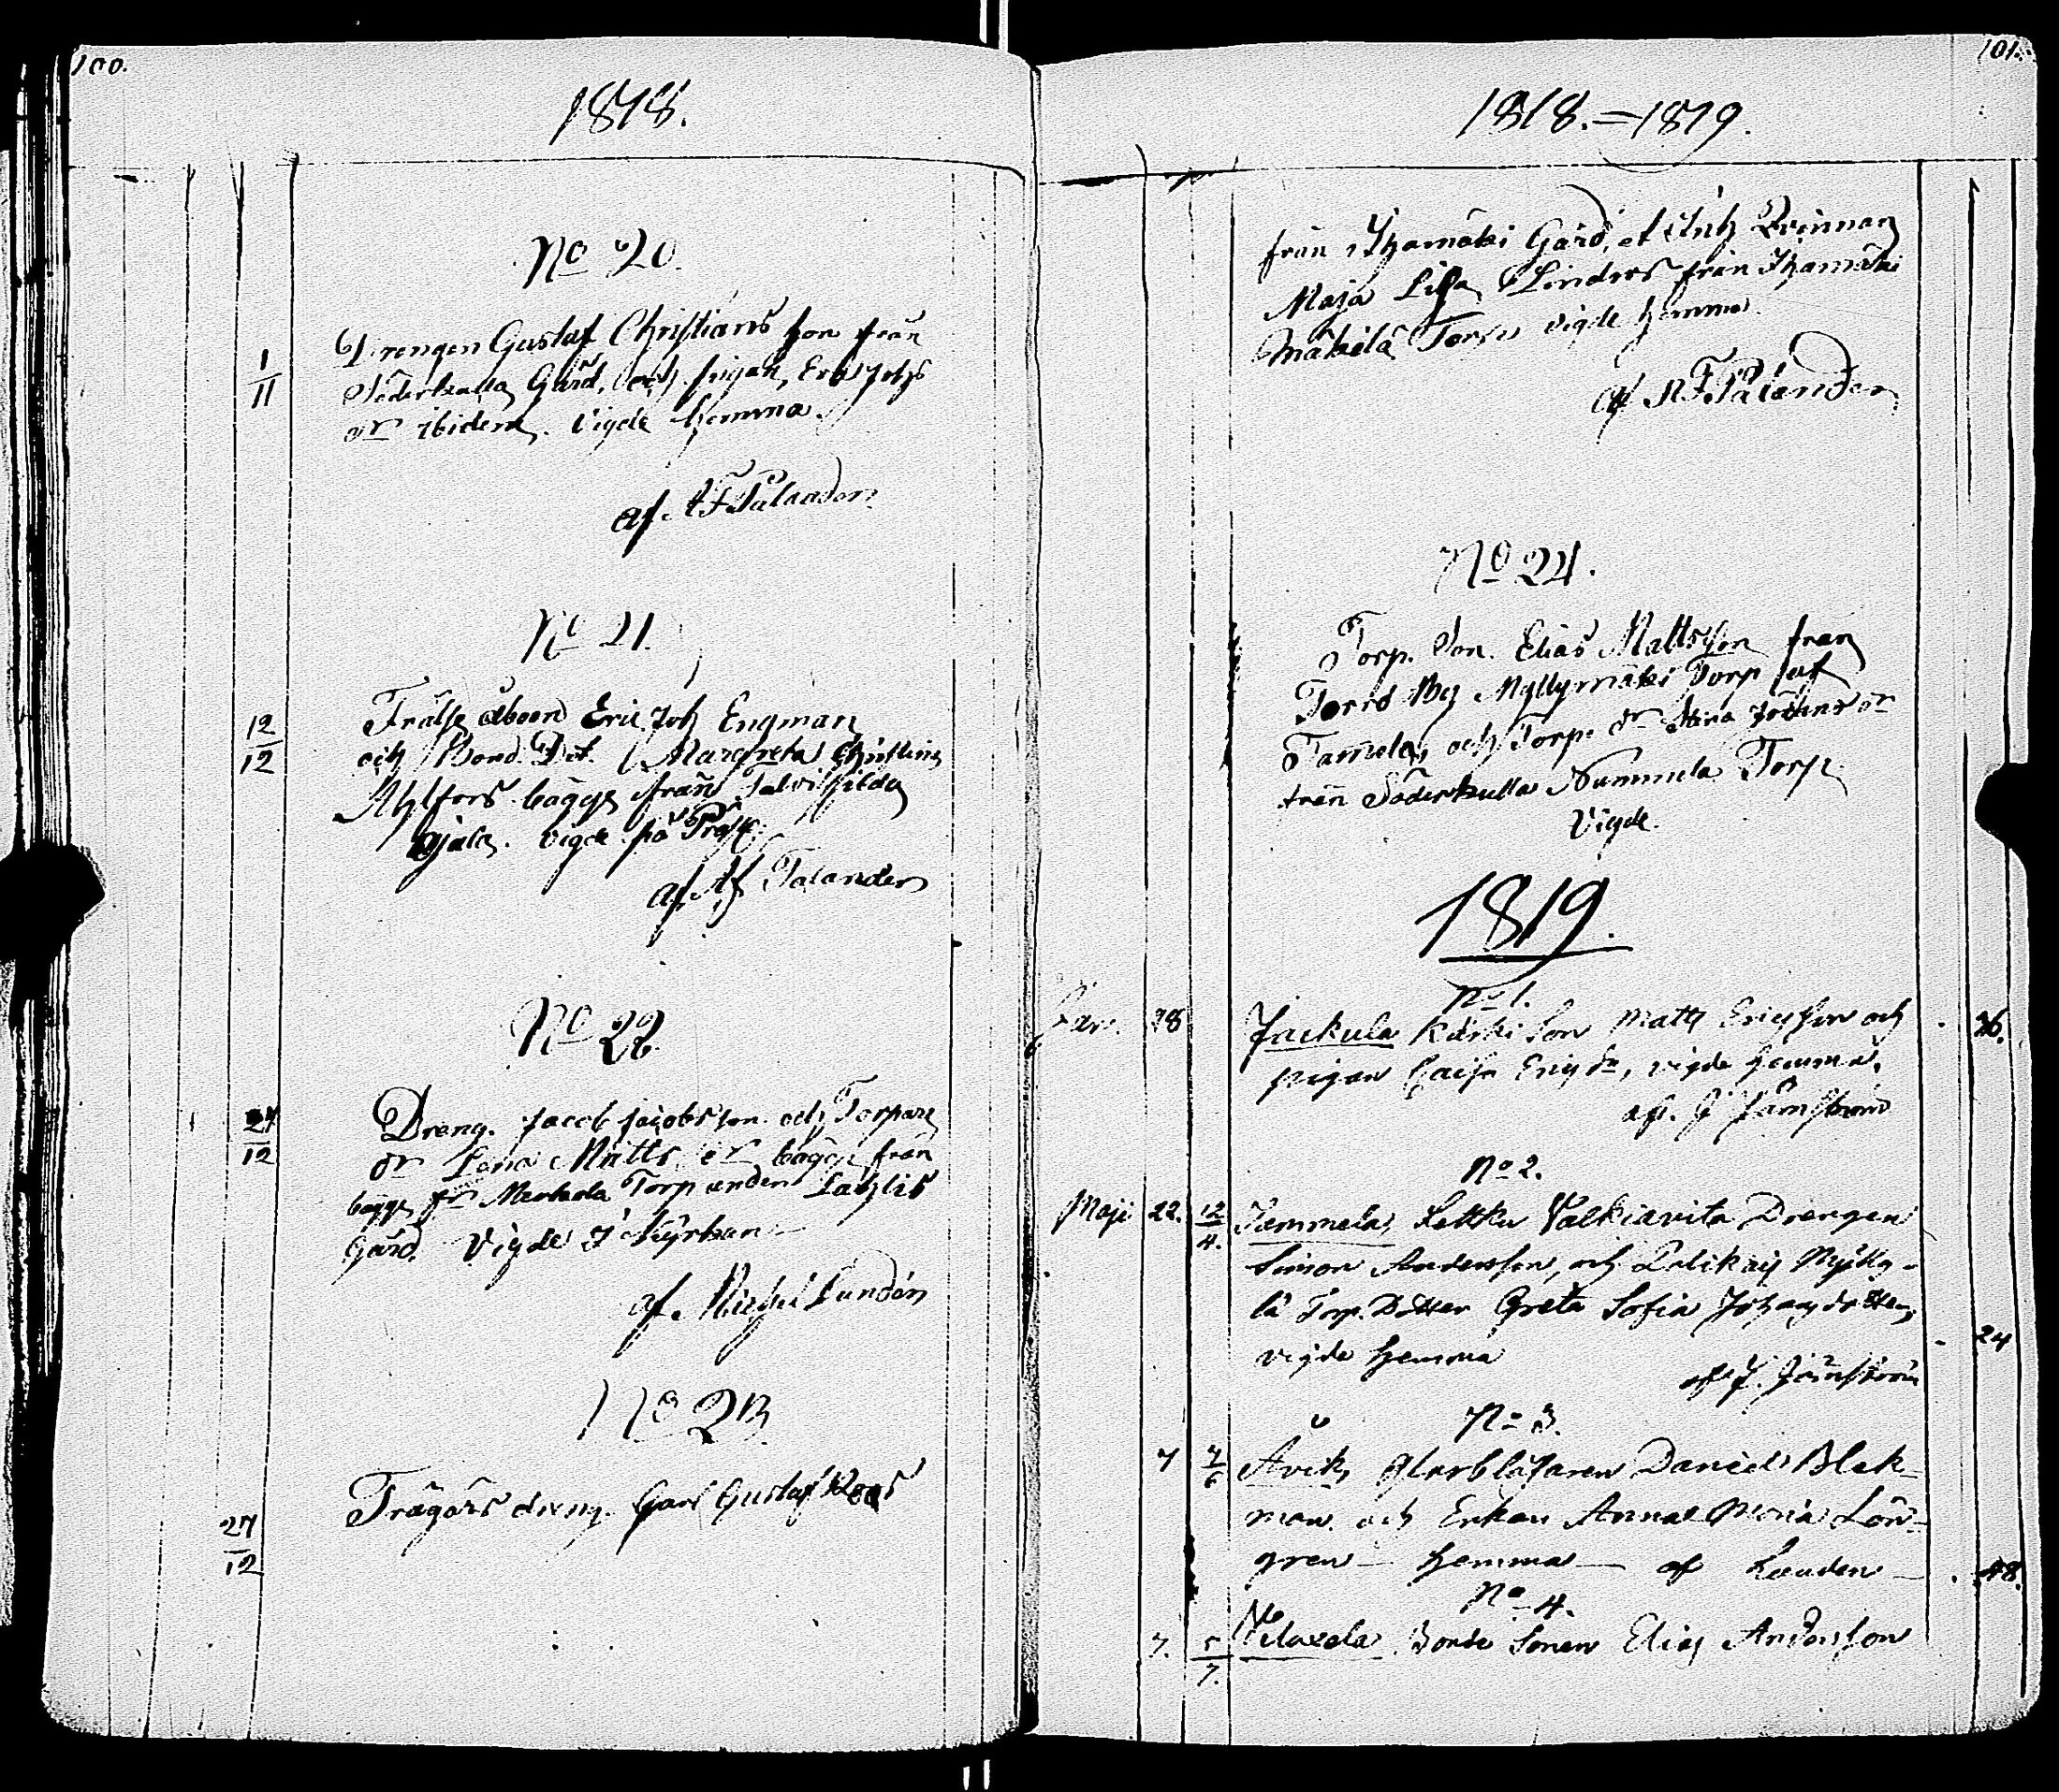 100.
1818.
No 20.
1/11
Drengen Gustaf Christians Son från
Söderkulla Gård, och pigan, Eva Johs
dr ibidem. Vigde hemma.
af A F Palander
No 21.
12/12
Frälse åboen Eric Joh Engman
och Bond. Dot. Margreta Christina
Ahlfors bägge från
vigde på
af Af Palander
No 22.
27/12
Dreng. Jacob Jacobsson och Torpare
dr Lena Matts dr bägge från
bägge fr Markola Torp under Lathlis
Gård. Vigde I Kyrkan
af Michel Lundén
No 23
27/12
Trägårs dreng. Carl Gustaf Roos
101.
1818.=1819.
från Ihamäki Gård, et Qvinnan
Maja Lisa Lindros från Ihamäki
Mäkilä Torp vigde hemma.
af A F Palander
No 24.
Torp. Son. Elias Mattsson från
Torro By Myllymäki Torp
Tamela, och Torp. dr Stina dr
från Söderkulla Nummela Torp
Vigde.
1819.
No 1.
Jan. 28 Jackula Kärki Son Matts Ericsson och 36.
pigan Caisa Ericsdr, vigde hemma.
af. J Jämström
No 2.
Maji 22. 12/4. Tammela, Lettku Valkiavita Drengen
Simon Andersson, och Mylly-
lä Torp. Dotter Greta Sofia Johansdotter,
vigde hemma 24
af J. Jämström
No 3.
7 7/6 Åvik, Glasblåsaren Daniel Blek-
man och Enkan Anna Maria Lön-
gren — hemma — af Lunden — 48.
No 4.
7. 5/7. Bonde Sonen Elias Andersson